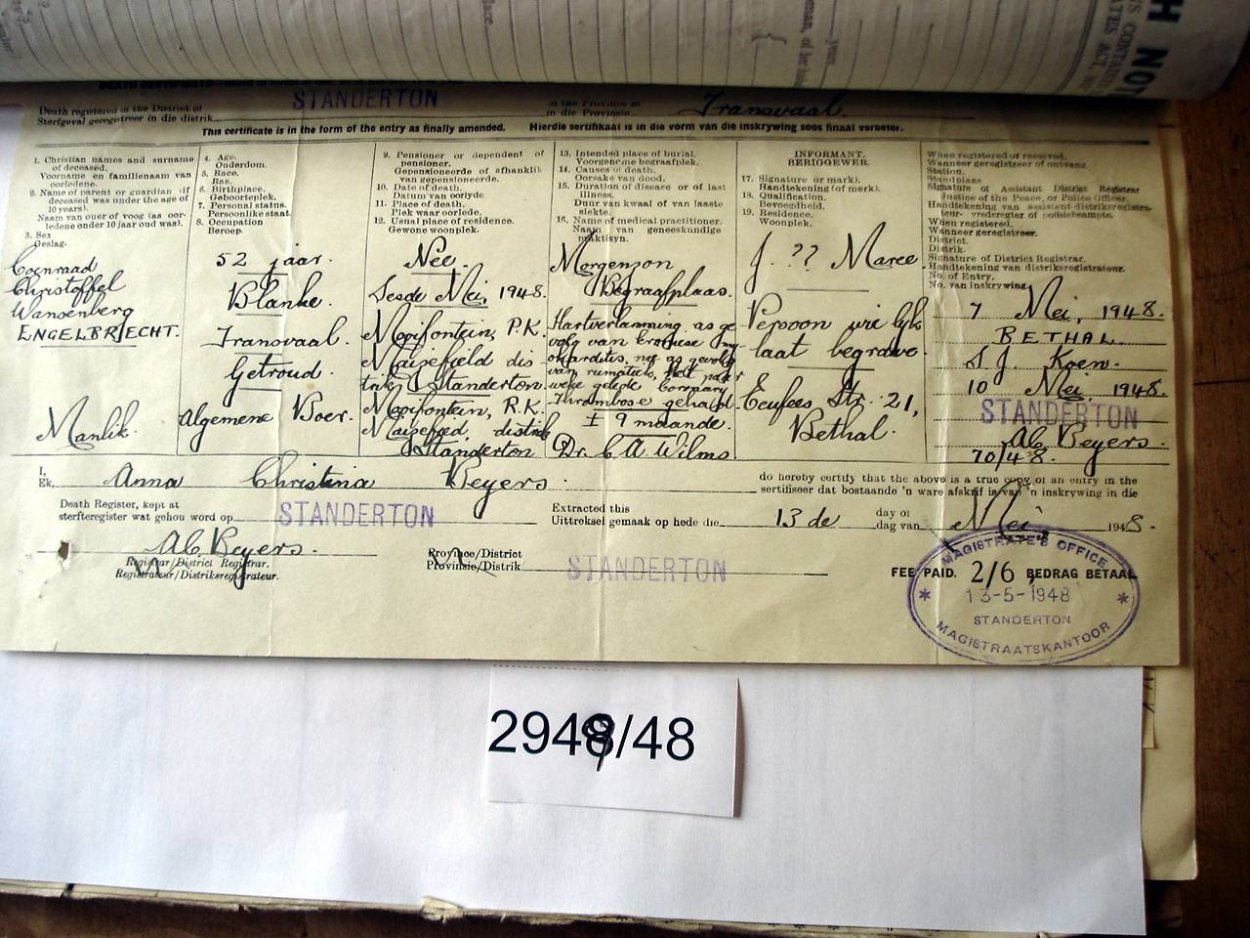 Death registered in the District of
Sterfgeval geregistreer in die distrik
STANDERTON
in the Province of
in die Provinsie
Transvaal.
This certificate is in the form of the entry as finally amended. Hierdie sertifikaat is in die vorm van die inskrywing soos finaal verbeter.
1. Christian names and surname of deceased.
Voorname en familienaam van oorledene.
2. Name of parent or guardian (if deceased was under the age of 10 years).
Naam van ouer of voog (as oorledene onder 10 jaar oud was).
3. Sex
Geslag.
4. Age.
Ouderdom.
5. Race.
Ras.
6. Birthplace.
Geboorteplek.
7. Personal status.
Persoonlike staat.
8. Occupation
Beroep
9. Pensioner or dependent of pensioner.
Gepensioeneerde of afhanklik van gepensioeneerde.
10. Date of death.
Datum van oorlyde
11. Place of death.
Plek waar oorlede.
12. Usual place of residence.
Gewone woonplek.
13. Intended place of burial.
Voorgenome begraafplek.
14. Causes of death.
Oorsake van dood.
15. Duration of disease or of last illness.
Duur van kwaal of van laaste siekte.
16. Name of medical practitioner.
Naam van geneeskundige praktisyn.
INFORMANT.
BERIGGEWER.
17. Signature or mark).
Handtekening (of merk).
18. Qualification.
Bevoegdheid.
19. Residence.
Woonplek.
When registered or received.
Wanneer geregistreer of ontvang.
Station.
Standplaas.
Signature of Assistant District Registrar
Justice of the Peace, or Police Officer.
Handtekening van assistent distriksregistrateur- vrederegter of polisiebeampte.
When registered.
Wanneer geregistreer.
District.
Distrik.
Signature of District Registrar.
Handtekening van distriksregistrateur.
No. of Entry.
No. van inskrywing
Coenraad
Christoffel
Wansenberg
ENGELBRECHT.
Manlik.
52 jaar.
Blanke.
Transvaal.
Getroud.
Algemene Boer.
Nee.
Sesde Mei, 1948.
Mooifontein, P.K.
Maizefield dis
trik, Standerton.
Mooifontein, P.K.
Maizefield, distrik
Standerton
Morgenzon
Begraafplaas.
Hartverlamming as ge
volg van kroniese my
okarditis, nes as gevolg
van rumatiek, het paar
weke gelede Coronary
Thrombose gehad.
± 9 maande.
Dr. C A. Wilms
J. ?? Maree
Persoon wie lyk
laat begrawe.
Eeufees Str. 21,
Bethal.
7 Mei, 1948.
BETHAL
S. J. Koen.
10 Mei, 1948
STANDERTON
AC Beyers.
70/48.
I,
Ek, Anna Christina Beyers.
do hereby certify that the above is a true copy of an entry in the
sertifiseer dat bostaande 'n ware afskrif is van 'n inskrywing in die
Death Register, kept at
sterfteregister wat gehou word op STANDERTON
Extracted this
Uittreksel gemaak op hede die 13 de
day of
dag van Mei 1948.
AC Beyers.
Registrar/District Registrar.
Registrateur/Distriksregistrateur.
Province/District
Provinsie/Distrik STANDERTON
FEE PAID. 2/6 BEDRAG BETAAL
MAGISTRATE'S OFFICE
13-5-1948
STANDERTON
MAGISTRAATSKANTOOR
2948/48